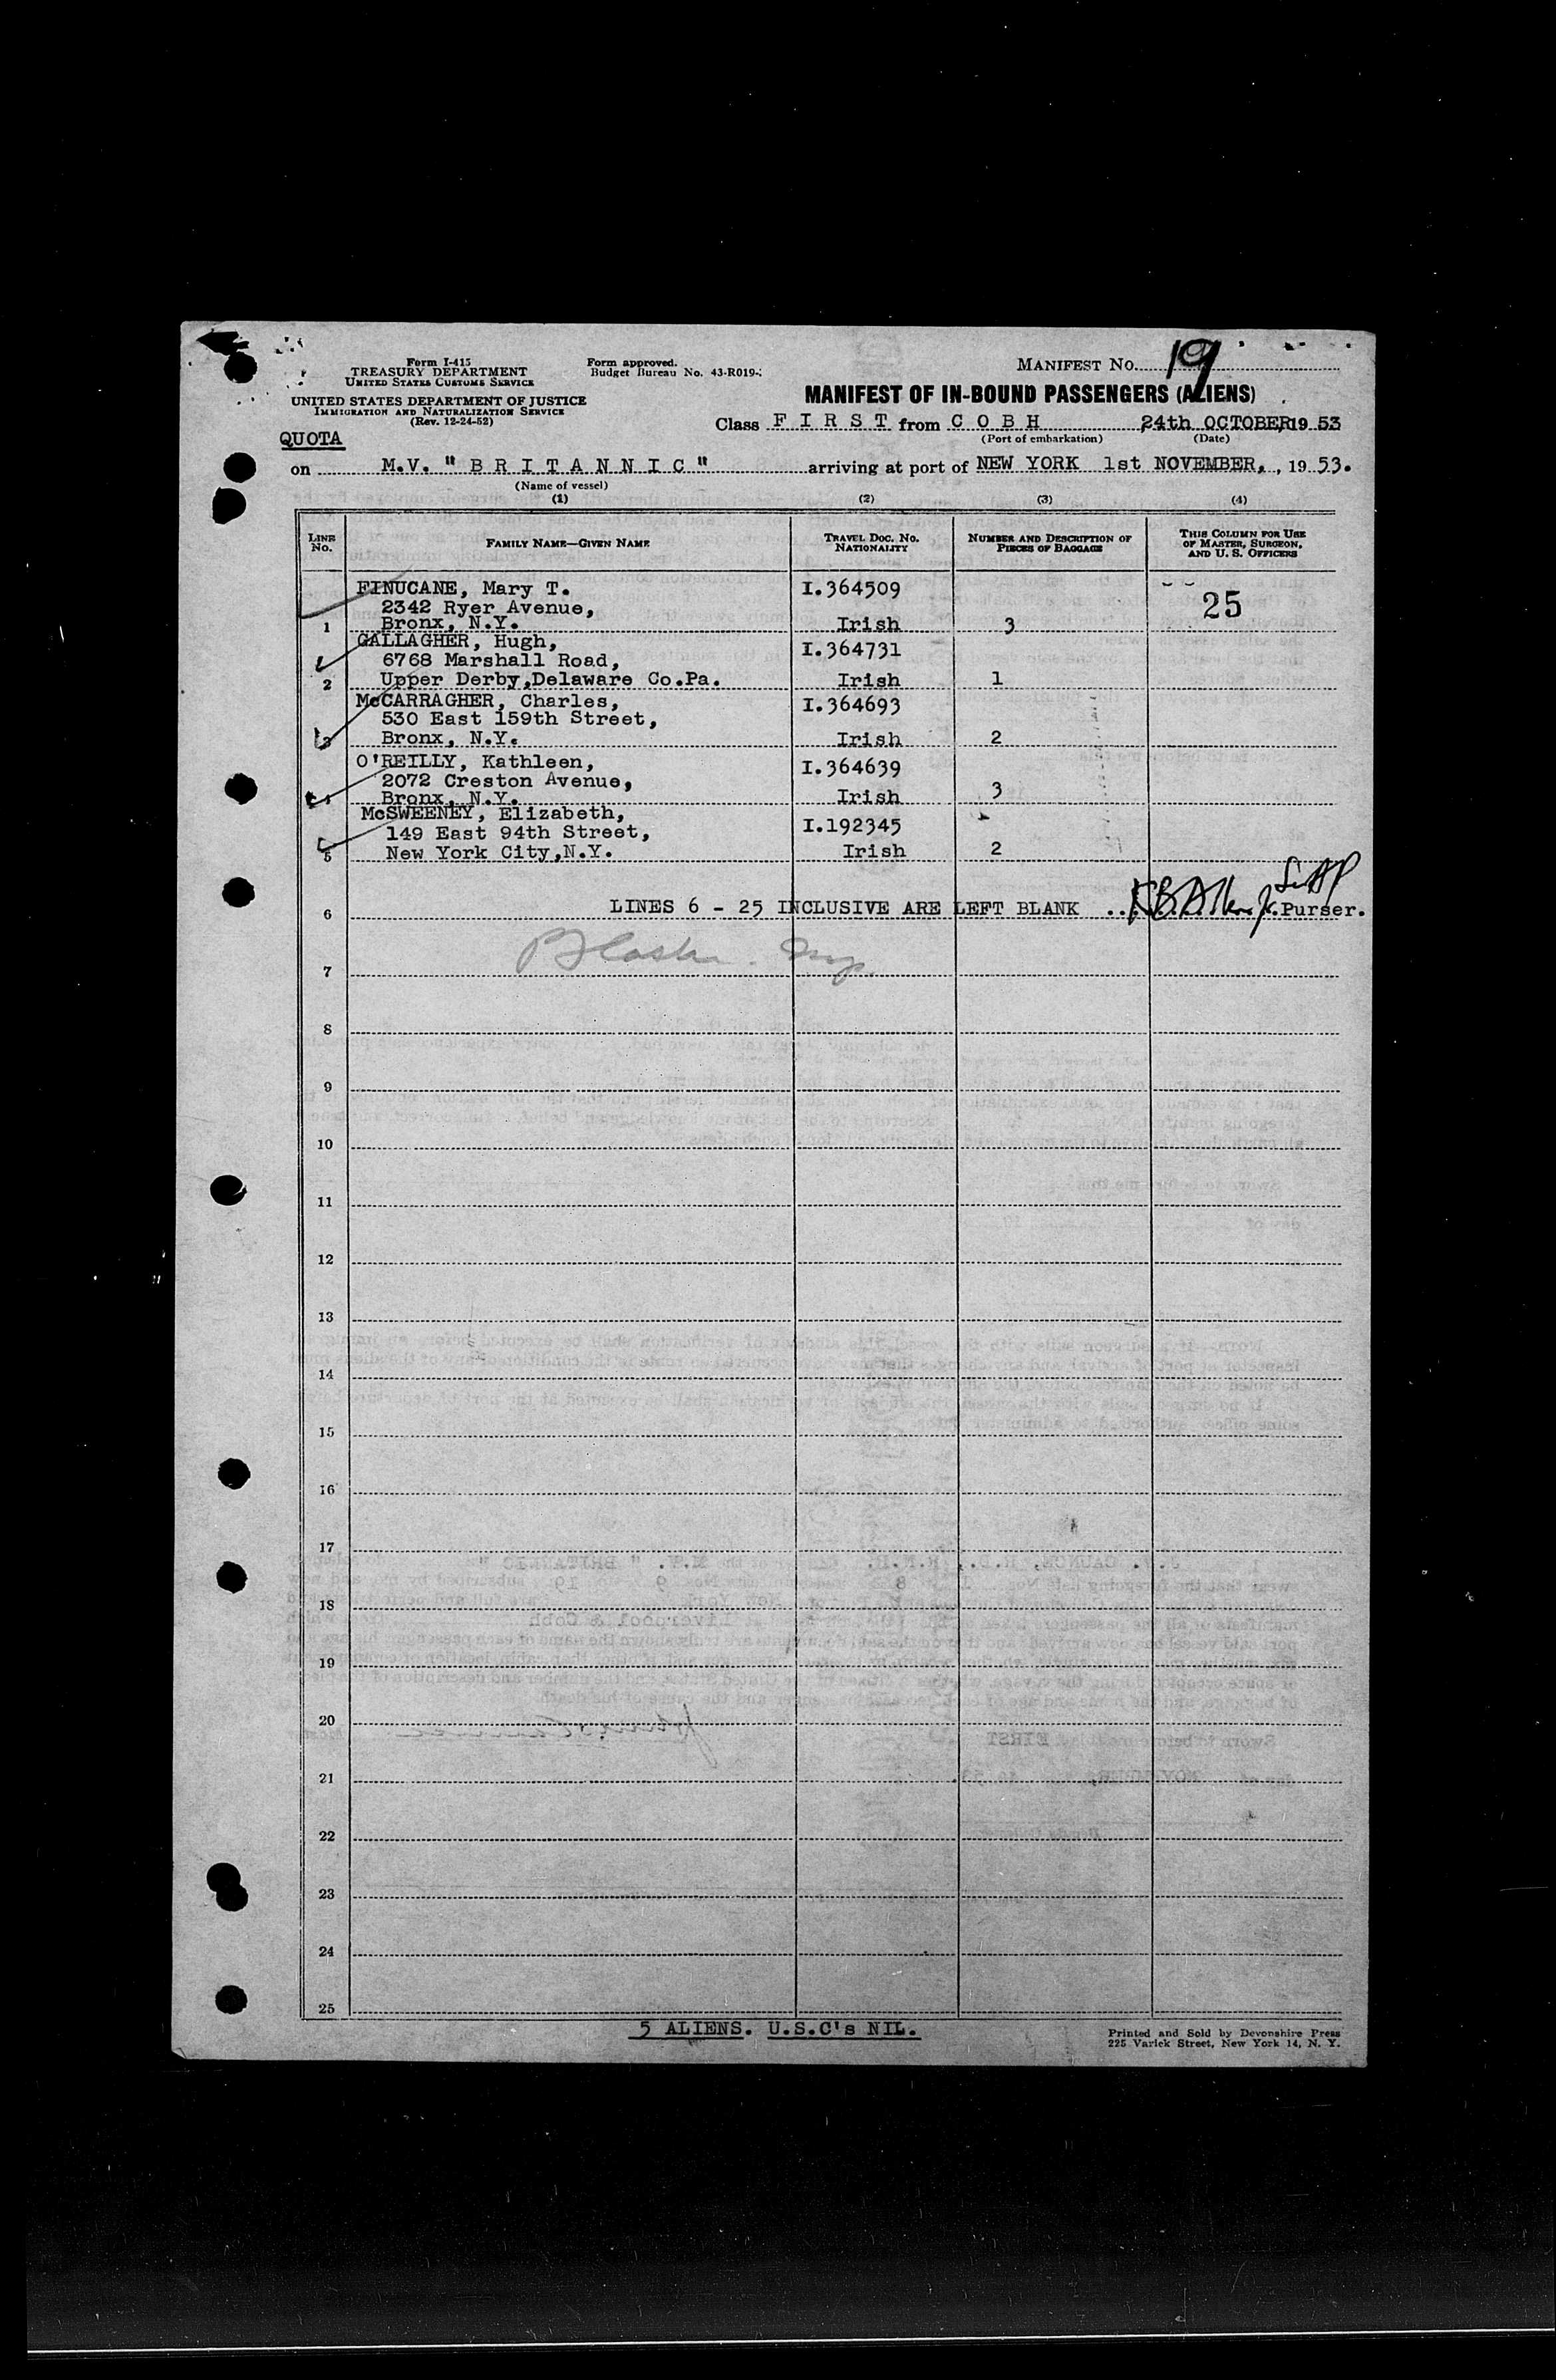 Form I-415
TREASURY DEPARTMENT
UNITED STATES CUSTOMS SERVICE
UNITED STATES DEPARTMENT OF JUSTICE
IMMIGRATION AND NATURALIZATION SERVICE
(Rev. 12-24-52)
Form approved.
Budget Bureau No. 43-R019-
MANIFEST No. 19
MANIFEST OF IN-BOUND PASSENGERS (ALIENS)
Class F I R S T from C O B H 24th OCTOBER, 19 53
(Port of embarkation) (Date)
QUOTA
on M.V. "B R I T A N N I C" arriving at port of NEW YORK 1st NOVEMBER, , 19 53.
(Name of vessel)
(1) (2) (3) (4)
LINE No. FAMILY NAME—GIVEN NAME TRAVEL DOC. No. NATIONALITY NUMBER AND DESCRIPTION OF PIECES OF BAGGAGE THIS COLUMN FOR USE OF MASTER, SURGEON, AND U. S. OFFICERS
FINUCANE, Mary T. I.364509
2342 Ryer Avenue, 25
1 Bronx, N.Y. Irish 3
GALLAGHER, Hugh, I.364731
6768 Marshall Road,
2 Upper Derby,Delaware Co.Pa. Irish 1
McCARRAGHER, Charles, I.364693
530 East 159th Street,
3 Bronx, N.Y. Irish 2
O'REILLY, Kathleen, I.364639
2072 Creston Avenue,
4 Bronx, N.Y. Irish 3
McSWEENEY, Elizabeth,
149 East 94th Street, I.192345
5 New York City,N.Y. Irish 2
6 LINES 6 - 25 INCLUSIVE ARE LEFT BLANK .. Purser.
7
8
9
10
11
12
13
14
15
16
17
18
19
20
21
22
23
24
25
5 ALIENS. U.S.C's NIL.
Printed and Sold by Devonshire Press
225 Varick Street, New York 14, N. Y.